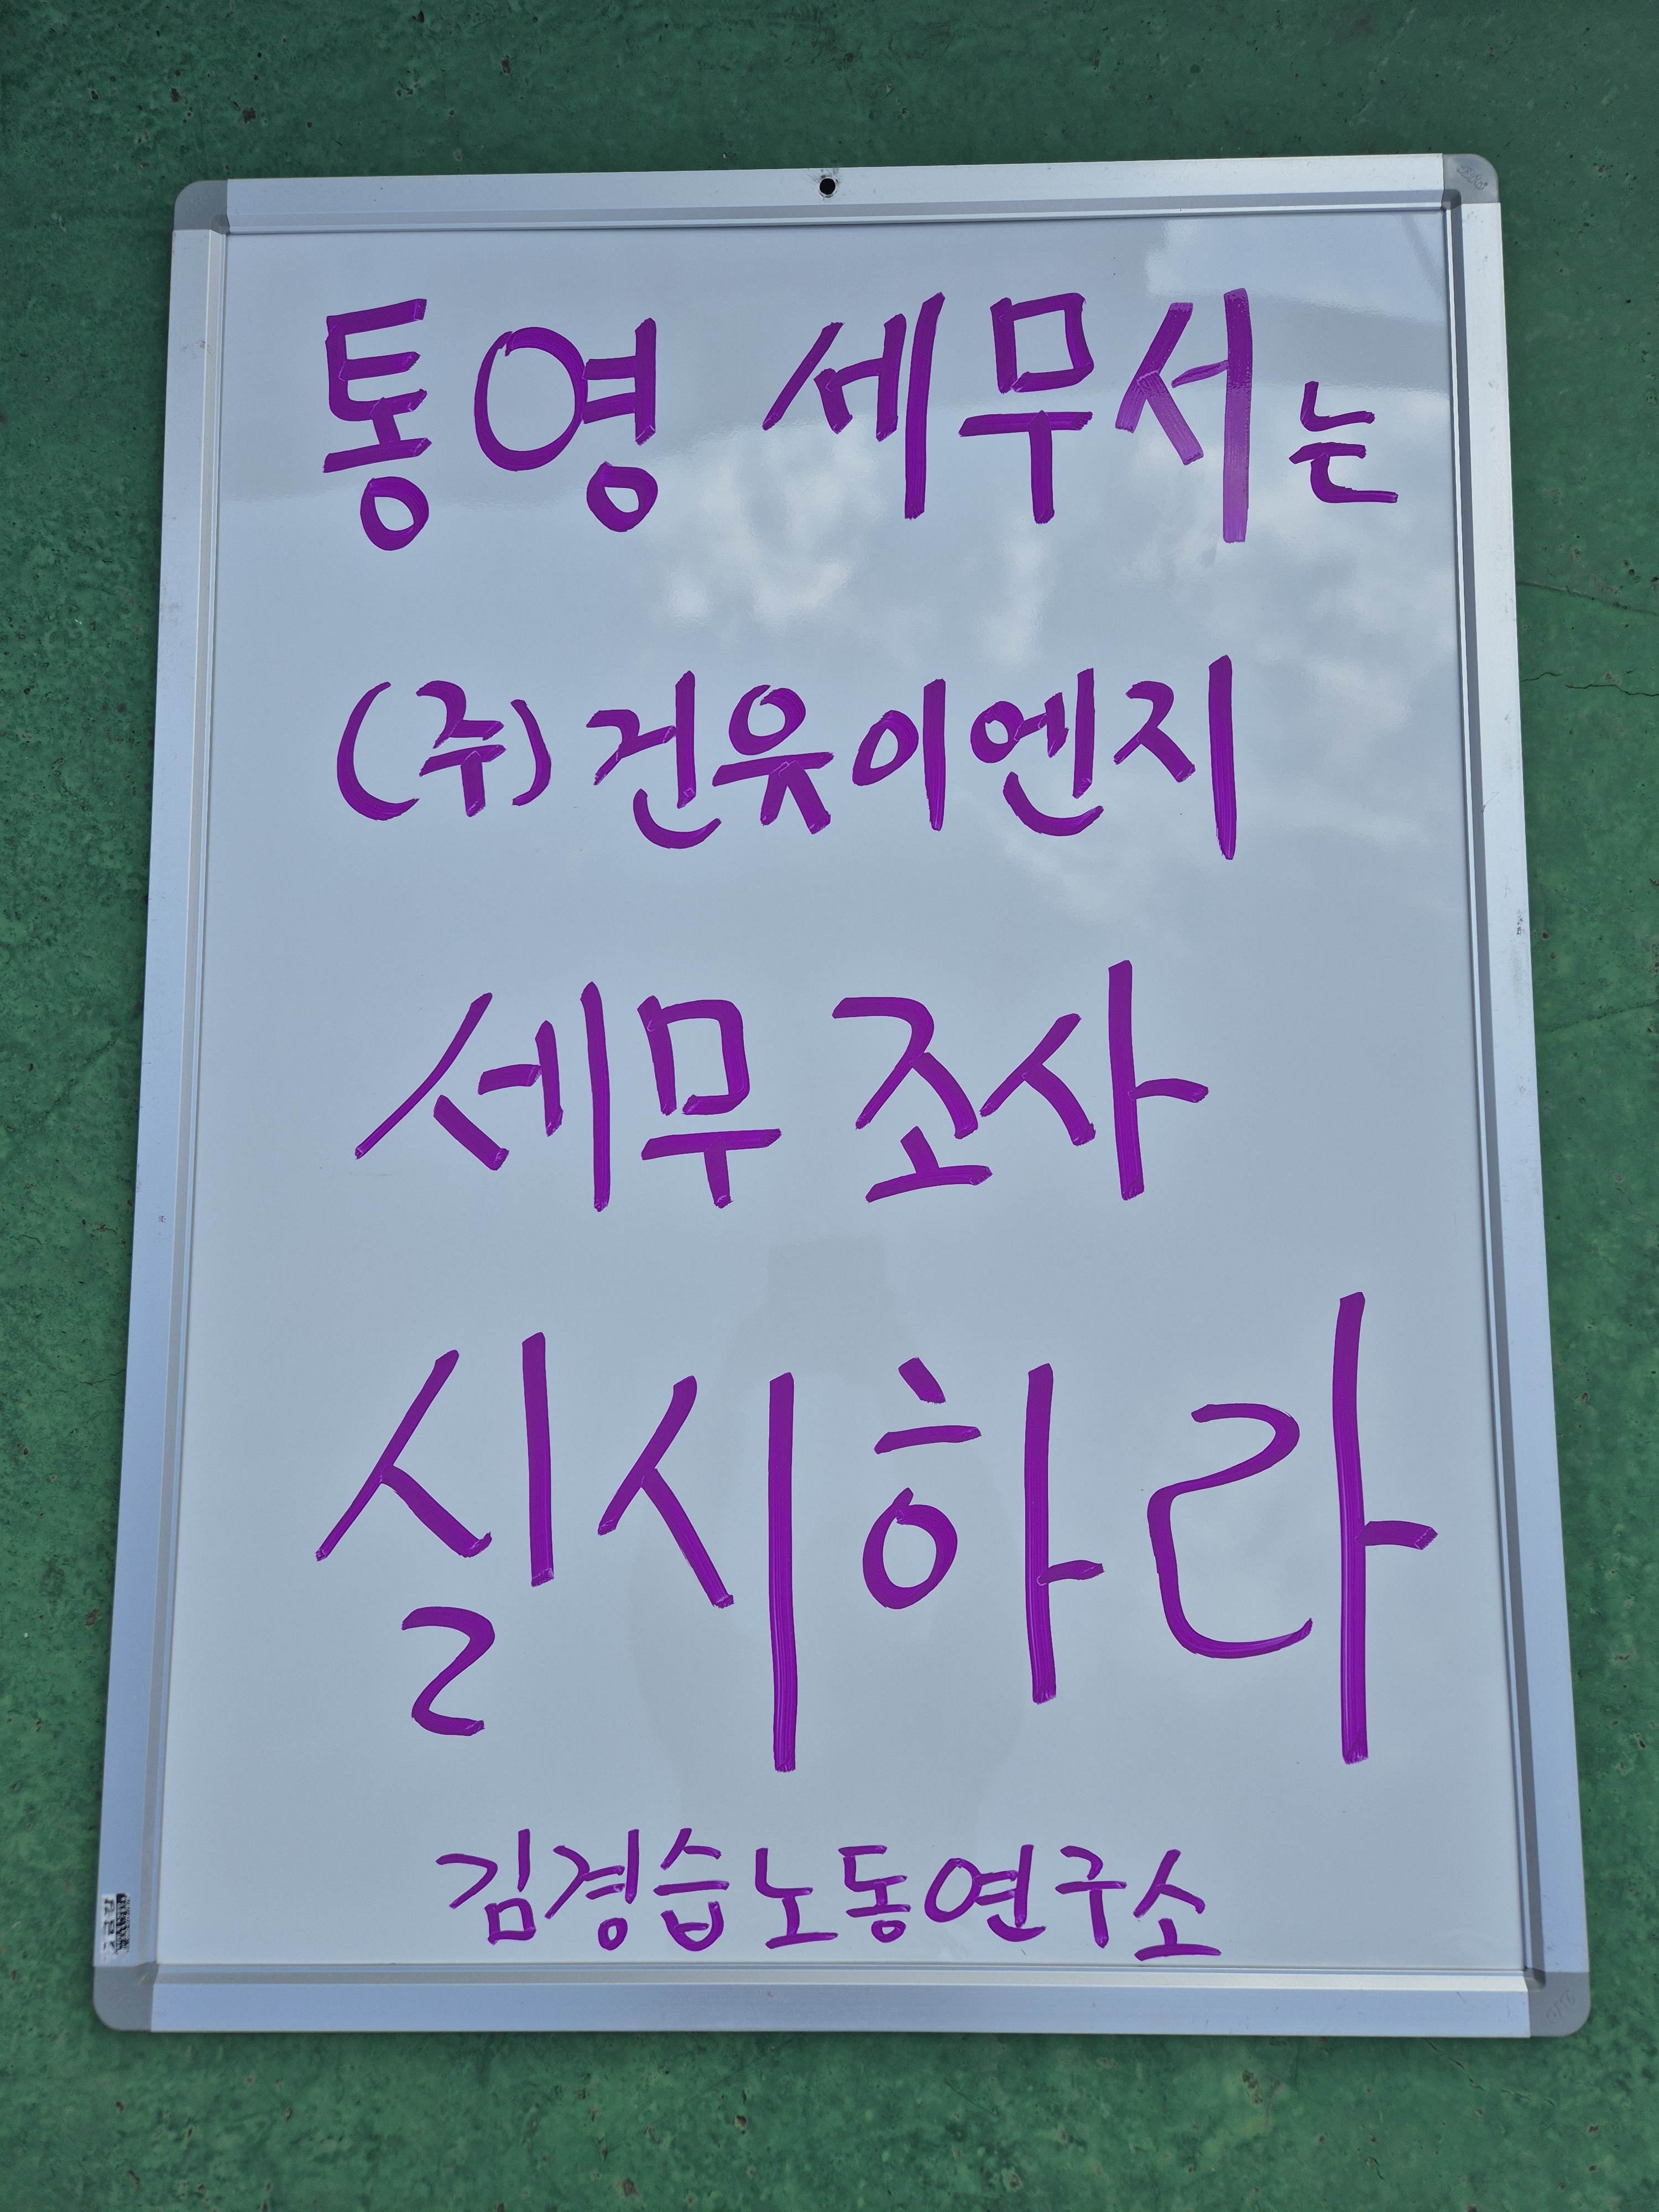 통영 세무서는
(주)건유이엔지
세무 조사
실시하라
김경습노동연구소